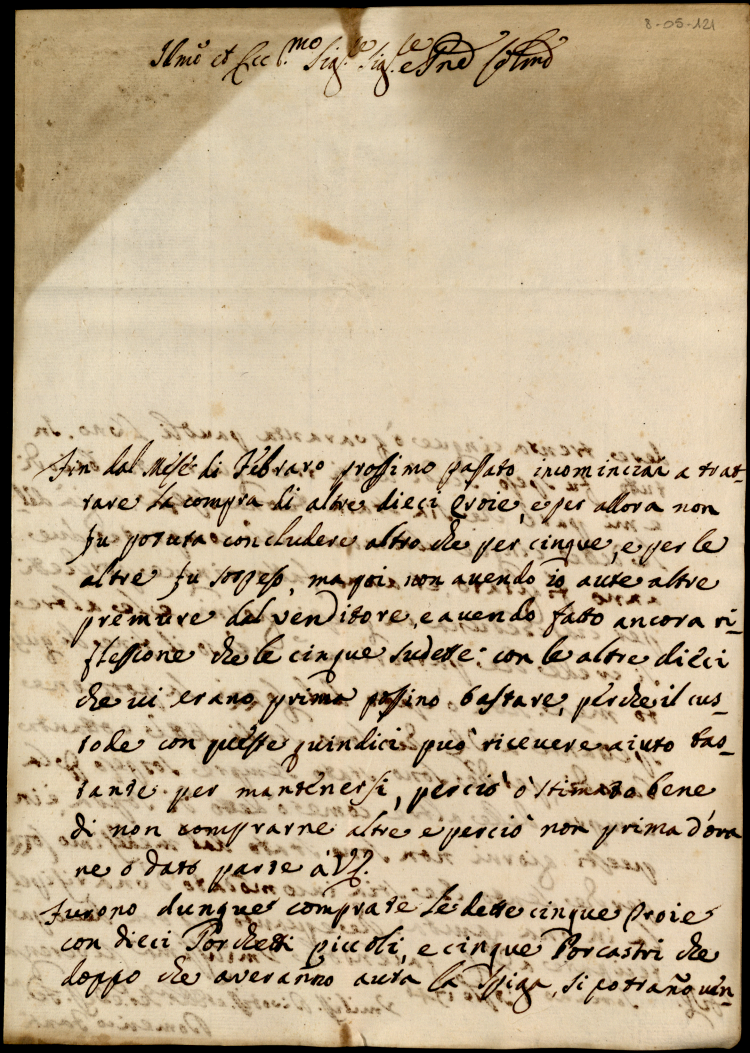 8-05-121
Ill.mo et Ecc.mo Sig.re Sig.re e Pne Colmo
Fin dal Mese di Febraro prossimo passato incominciai a trat-
tare la compra di altre dieci Troie, e per allora non
fu potuta concludere altro che per cinque, e per le
altre fu sospeso, ma poi non avendo io aute altre
premure dal venditore, e avendo fatto ancora ri-
flessione che le cinque sudette con le altre dieci
che vi erano prima possino bastare, perche il cus-
tode con queste quindici può ricevere aiuto bas-
tante per mantenersi, perciò ò stimato bene
di non comprarne altre e perciò non prima d'ora
ne ò dato parte à V.E.
Furono dunque comprate le dette cinque Troie
con dieci Porchetti piccoli, e cinque Porcastri che
doppo che averanno auta la spiga, si potrano ven-